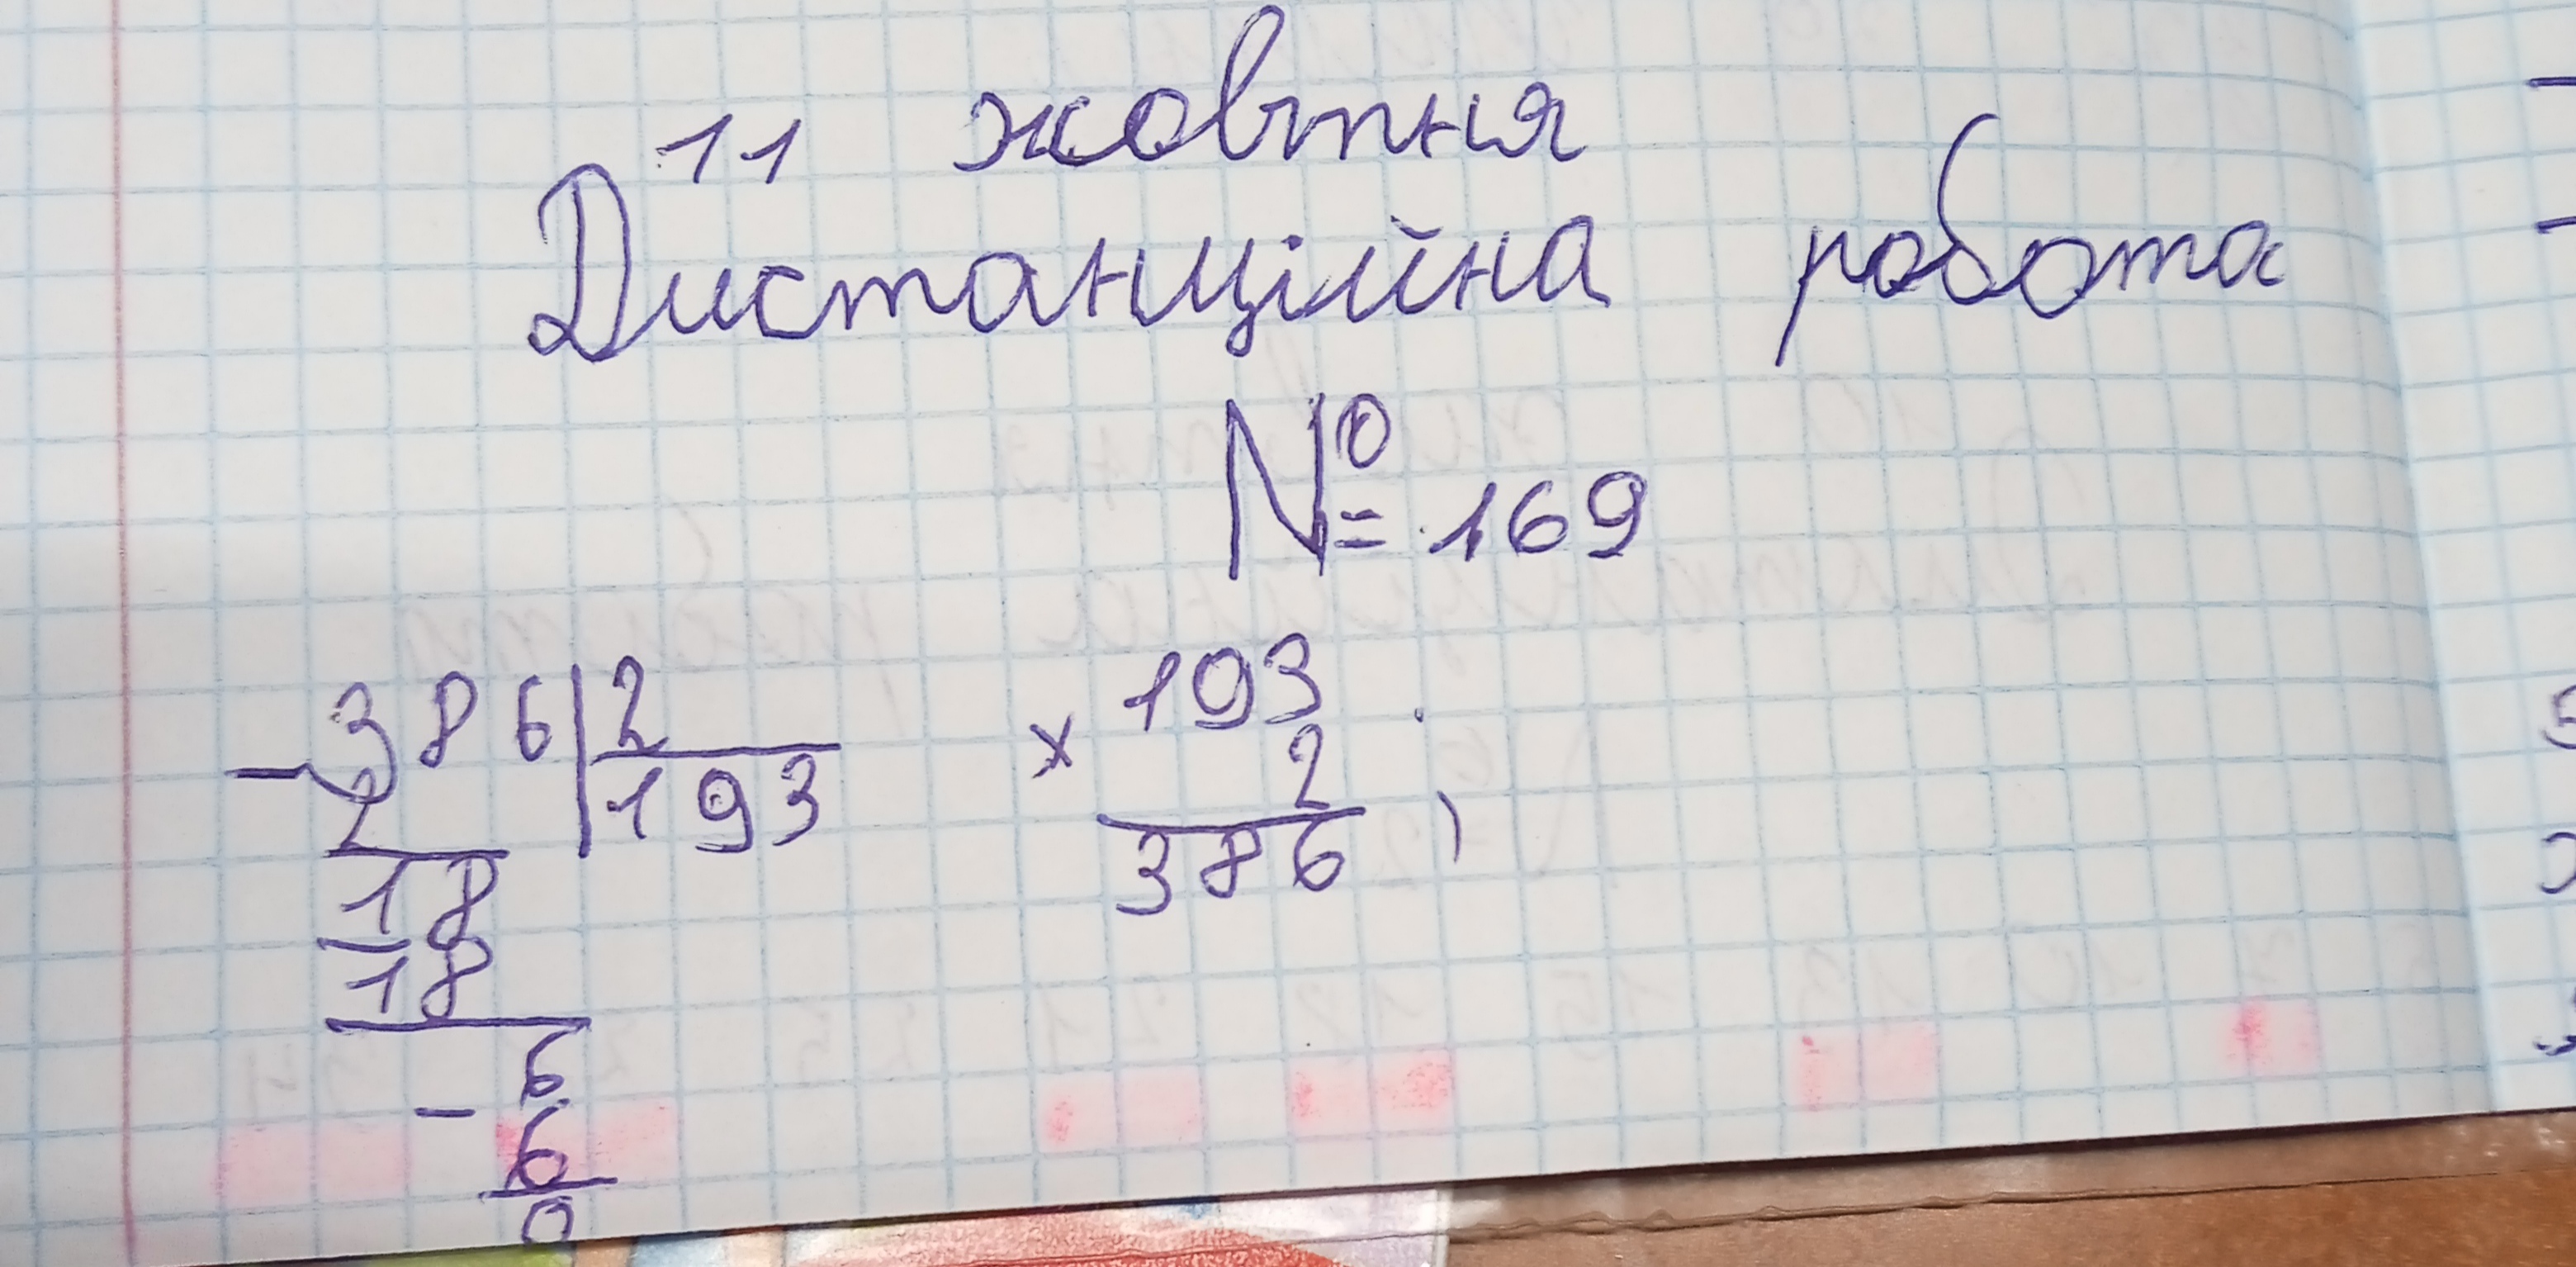 11 жовтня
Дистанційна робота
№ 169
- 386 | 2
2 | 193
18
- 18
6
- 6
0
× 193
2
386